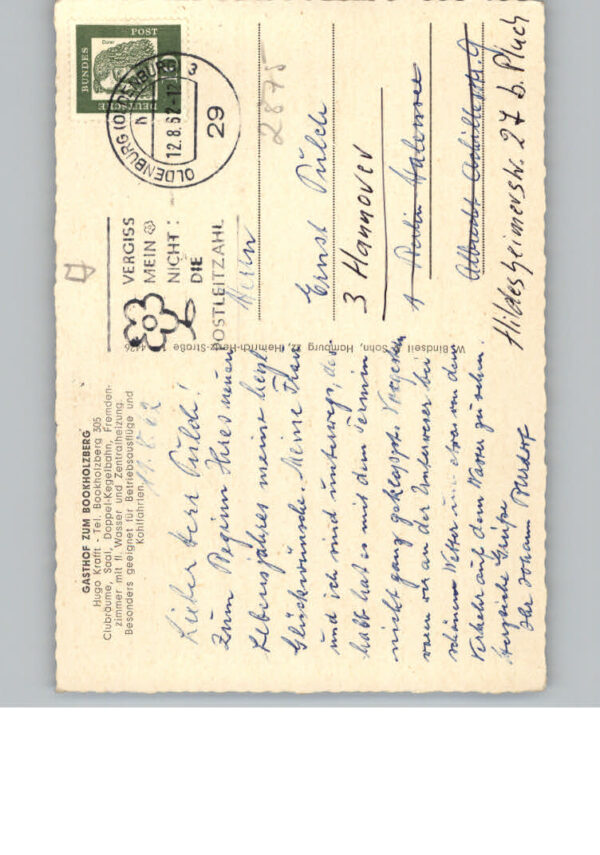 GASTHOF ZUM BOOKHOLZBERG
Hugo Krafft - Tel. Bookholzberg 305
Clubräume, Saal, Doppel-Kegelbahn, Fremden-
zimmer mit fl. Wasser und Zentralheizung.
Besonders geeignet für Betriebsausflüge und
Kohlfahrten.
11.8.62
Lieber Herr Pulch!
Zum Beginn Ihres neuen
Lebensjahres meine herzl.
Glückwünsche. Meine Frau
und ich sind unterwegs, des-
halb hat es mit dem Termin
nicht ganz geklappt. Vorgestern
waren wir an der Unterweser bei
schönem Wetter und etwas von dem
Verkehr auf dem Wasser zu sehn.
Herzliche Grüße
Ihr Johann
W. Bindseil Sohn, Hamburg 22, Heinrich-Hertz-Straße
VERGISS
MEIN
NICHT:
DIE
POSTLEITZAHL
OLDENBURG (OLDENBURG)
3
12.8.62-12
29
DEUTSCHE
BUNDES
POST
Dürer
2875
Herrn
Ernst Pulch
3 Hannover
1 Berlin Halensee
Albrecht-Achilles-Str. 9
Hildesheimerstr. 27 b. Pluch